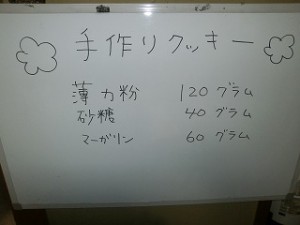 手作りクッキー
薄力粉 120 グラム
砂糖 40 グラム
マーガリン 60 グラム